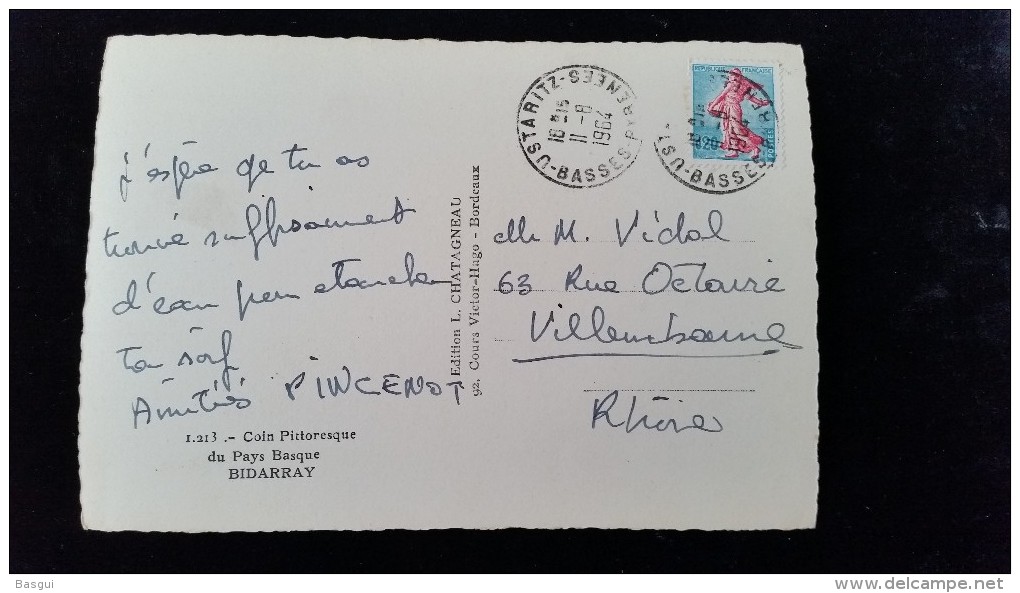 j'espère que tu as
trouvé suffisament
d'eau pour etancher
ta soif
Amitiés PINCENOT
1.213 .- Coin Pittoresque
du Pays Basque
BIDARRAY
Edition L. CHATAGNEAU
92, Cours Victor-Hugo - Bordeaux
USTARITZ-BASSES-PYRENEES
11-8
1964
REPUBLIQUE FRANÇAISE
POSTES
0,20
Mlle M. Vidal
63 Rue Octavie
Villeurbanne
Rhône
Basgui
www.delcampe.net